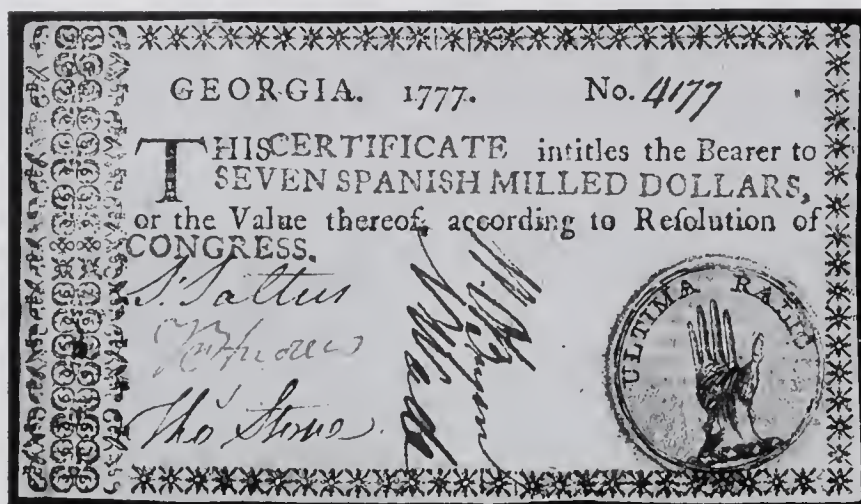 GEORGIA. 1777. No. 4177
THIS CERTIFICATE intitles the Bearer to
SEVEN SPANISH MILLED DOLLARS,
or the Value thereof, according to Reſolution of
CONGRESS.
S. Saltus
Thos Stone
ULTIMA RATIO